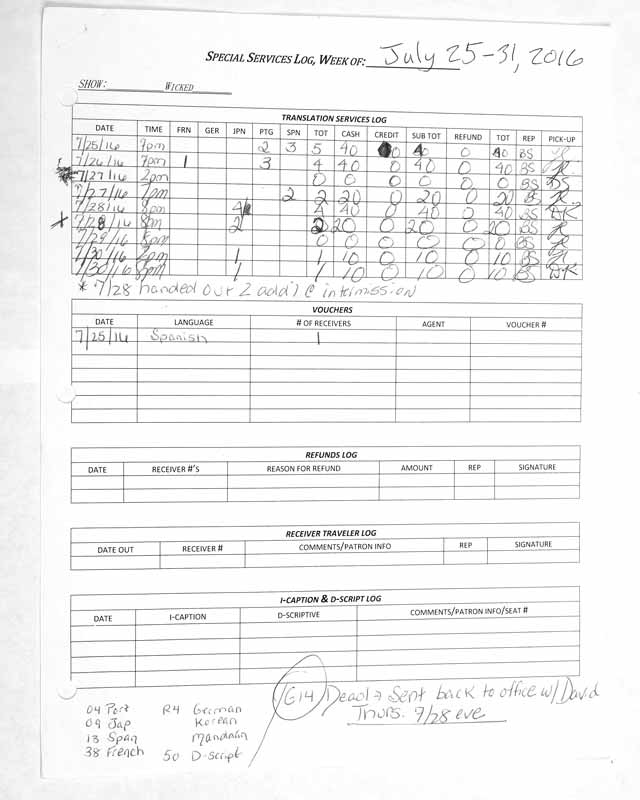 SPECIAL SERVICES LOG, WEEK OF: July 25-31, 2016
SHOW: WICKED
TRANSLATION SERVICES LOG
DATE TIME FRN GER JPN PTG SPN TOT CASH CREDIT SUB TOT REFUND TOT REP PICK-UP
7/25/16 7pm 2 3 5 40 0 40 0 40 BS
7/26/16 7pm 1 3 4 40 0 40 0 40 BS
7/27/16 2pm 0 0 0 0 0 0 BS
7/27/16 7pm 2 2 20 0 20 0 20 BS
7/28/16 4 4 40 0 40 0 40 BS
7/28/16 8pm 2 2 20 0 20 0 20 BS
7/29/16 8pm 0 0 0 0 0 0 BS
7/30/16 2pm 1 1 10 0 10 0 10 BS
7/30/16 8pm 1 1 10 0 10 0 10 BS DK
* 7/28 handed out 2 add'l @ intermission
VOUCHERS
DATE LANGUAGE # OF RECEIVERS AGENT VOUCHER #
7/25/16 Spanish 1
REFUNDS LOG
DATE RECEIVER #'S REASON FOR REFUND AMOUNT REP SIGNATURE
RECEIVER TRAVELER LOG
DATE OUT RECEIVER # COMMENTS/PATRON INFO REP SIGNATURE
I-CAPTION & D-SCRIPT LOG
DATE I-CAPTION D-SCRIPTIVE COMMENTS/PATRON INFO/SEAT #
G14 Dead → Sent back to office w/ David
Thurs. 7/28 eve
04 Port R4 German
09 Jap Korean
13 Span Mandarin
38 French 50 D-script